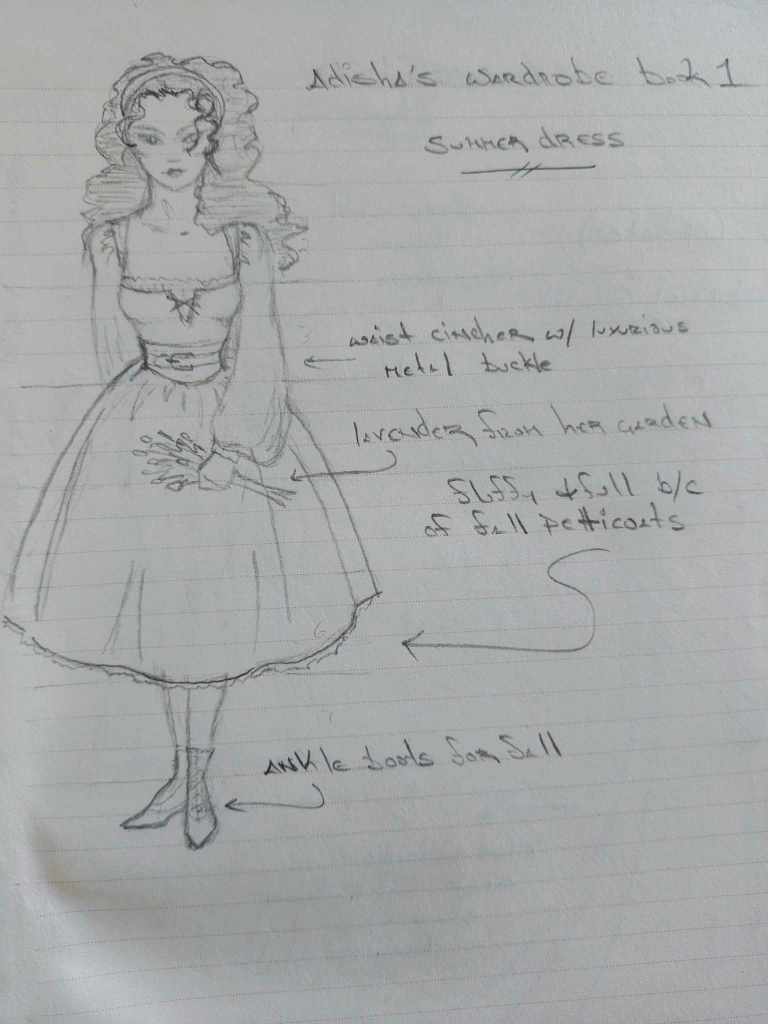 Adisha's wardrobe book 1
Summer dress
waist cincher w/ luxurious
metal buckle
lavender from her garden
fluffy & full b/c
of fall petticoats
ankle boots for fall